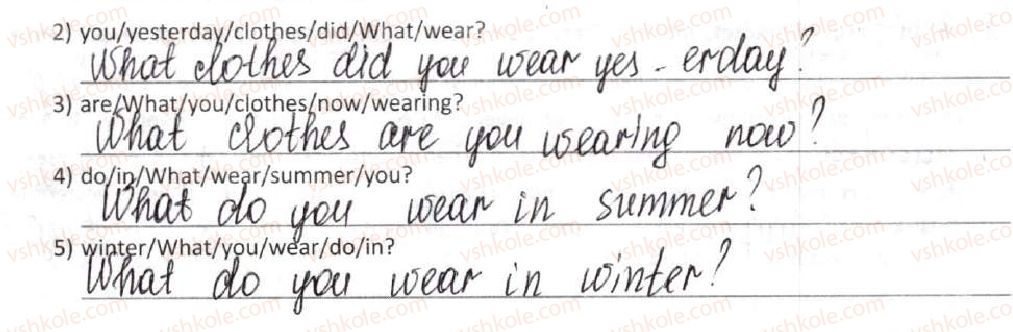 2) you/yesterday/clothes/did/What/wear?
What clothes did you wear yes - erday?
3) are/What/you/clothes/now/wearing?
What clothes are you wearing now?
4) do/in/What/wear/summer/you?
What do you wear in summer?
5) winter/What/you/wear/do/in?
What do you wear in winter?